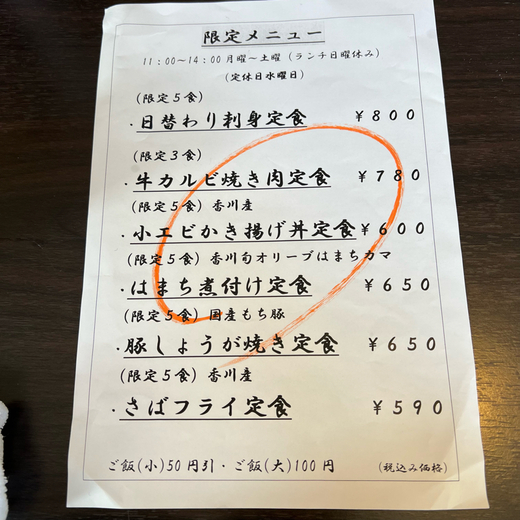 限定メニュー
11:00～14:00月曜～土曜（ランチ日曜休み）
(定休日水曜日)
(限定5食)
・日替わり刺身定食 ￥800
(限定3食)
・牛カルビ焼き肉定食 ￥780
(限定5食) 香川産
・小エビかき揚げ丼定食 ￥600
(限定5食) 香川旬オリーブはまちカマ
・はまち煮付け定食 ￥650
(限定5食) 国産もち豚
・豚しょうが焼き定食 ￥650
(限定5食) 香川産
・さばフライ定食 ￥590
ご飯(小)50円引・ご飯(大)100円 (税込み価格)